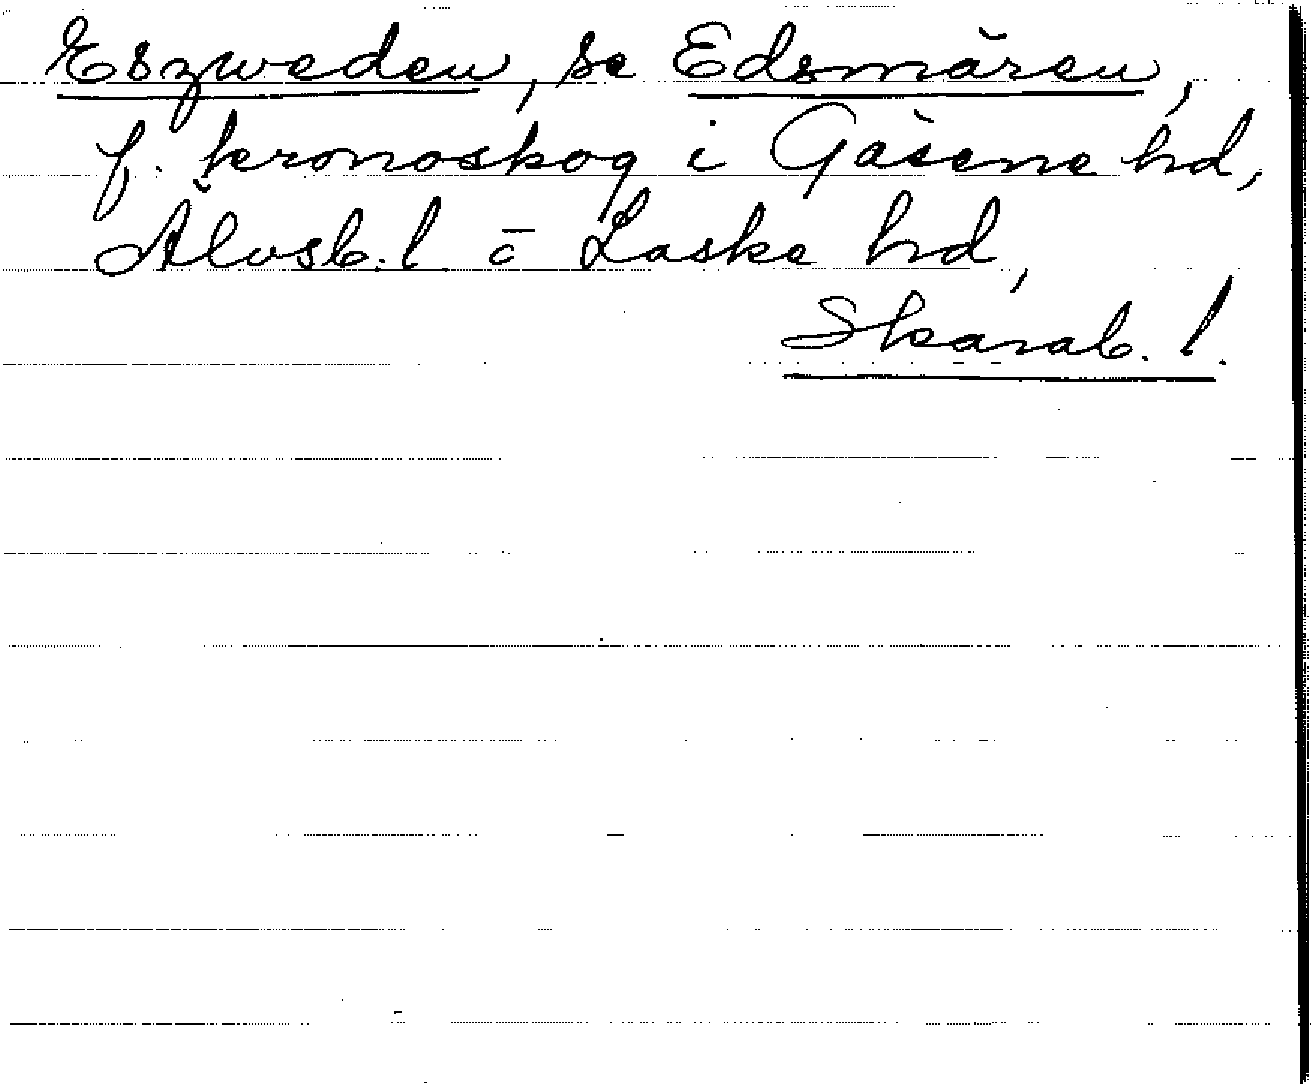 Eszweden, se Edsmären,
f. kronoskog i Gäsene hd,
Älvsb. l o Laske hd,
Skarab. l.